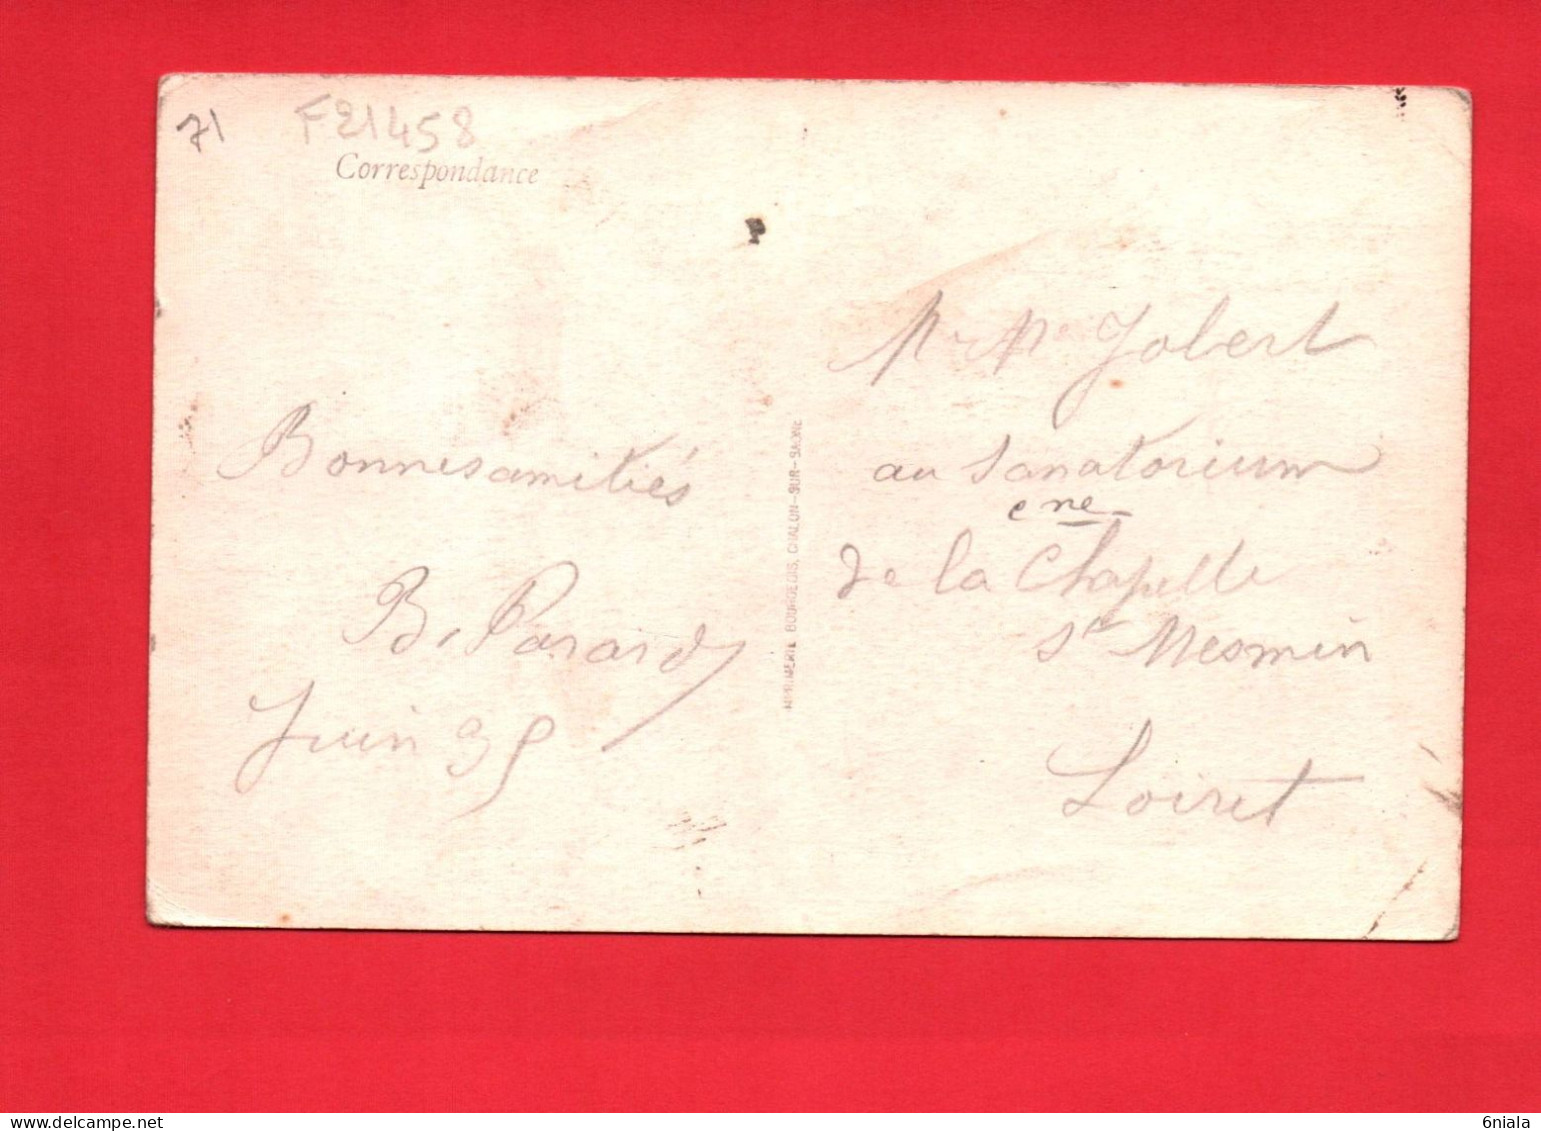 71
F21458
Correspondance
Bonnes amitiés
B. Parardy
Juin 35
IMPRIMERIE BOURGEOIS, CHALON-SUR-SAONE
Jobert
au Sanatorium
de la Chapelle
St Mesmin
Loiret
www.delcampe.net
6niala